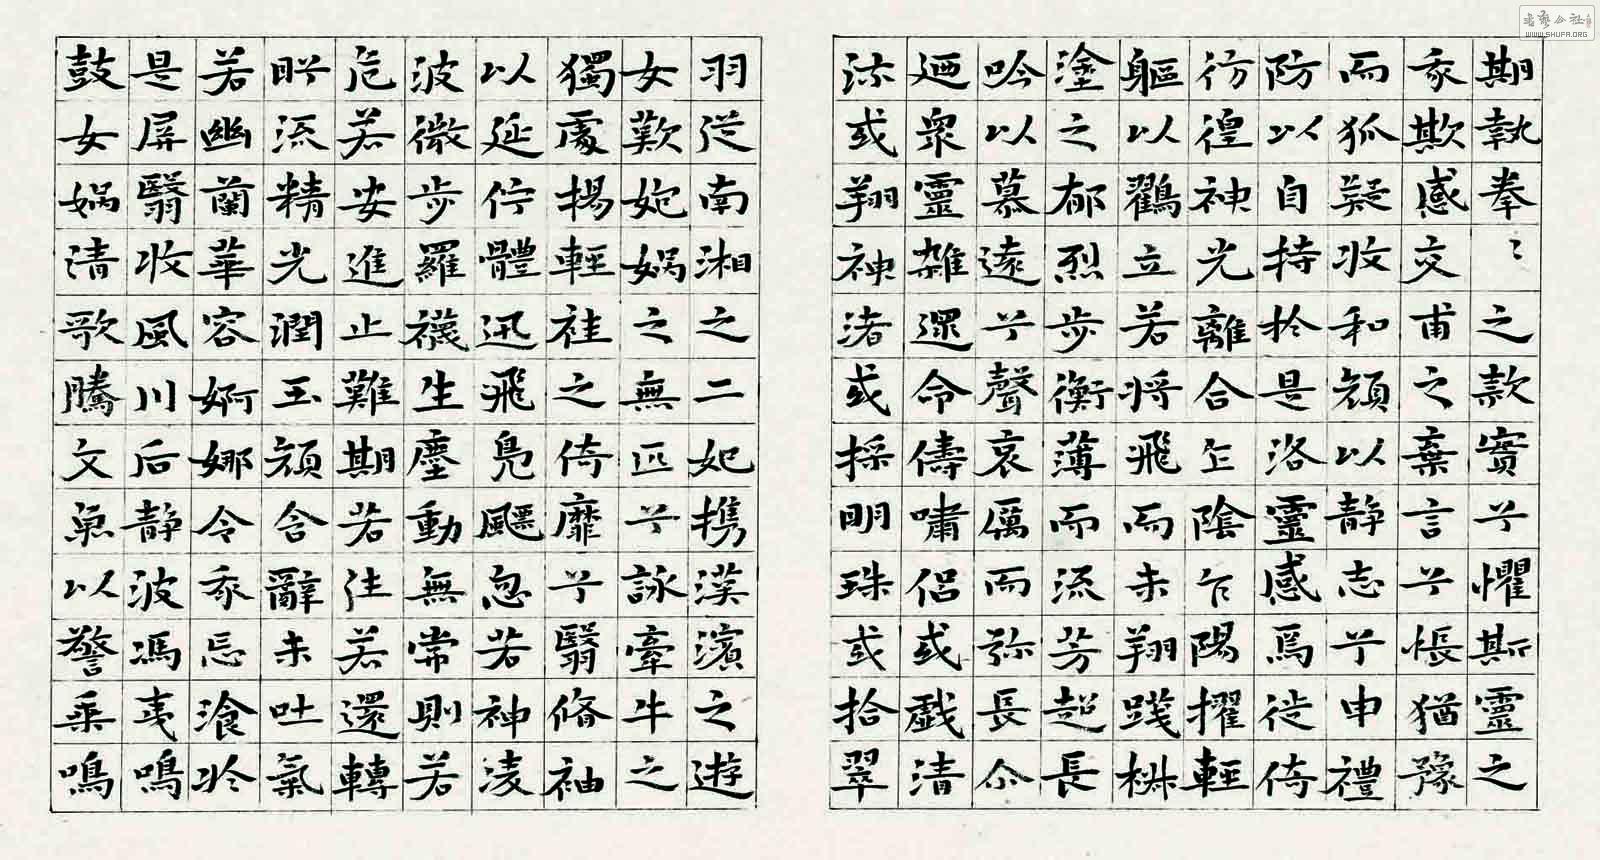 期執拳〻之款實兮懼斯靈之
我欺感交甫之棄言兮悵猶豫
而狐疑收和顏以靜志兮申禮
防以自持於是洛靈感焉徙倚
彷徨神光離合乍陰乍陽擢輕
軀以鶴立若將飛而未翔踐椒
塗之郁烈步衡薄而流芳超長
吟以慕遠兮聲哀厲而弥長尒
迺眾靈雜遝命儔嘯侶或戲清
流或翔神渚或採明珠或拾翠
羽從南湘之二妃携漢濱之遊
女歎匏媧之無匹兮詠牽牛之
獨處揚輕袿之倚靡兮翳脩袖
以延佇體迅飛鳧飄忽若神淩
波微步羅襪生塵動無常則若
危若安進止難期若往若還轉
眄流精光潤玉顏含辭未吐氣
若幽蘭華容婀娜令我忘飡於
是屏翳收風川后靜波馮夷鳴
鼓女媧清歌騰文魚以警乘鳴
書藝公社
WWW.SHUFA.ORG